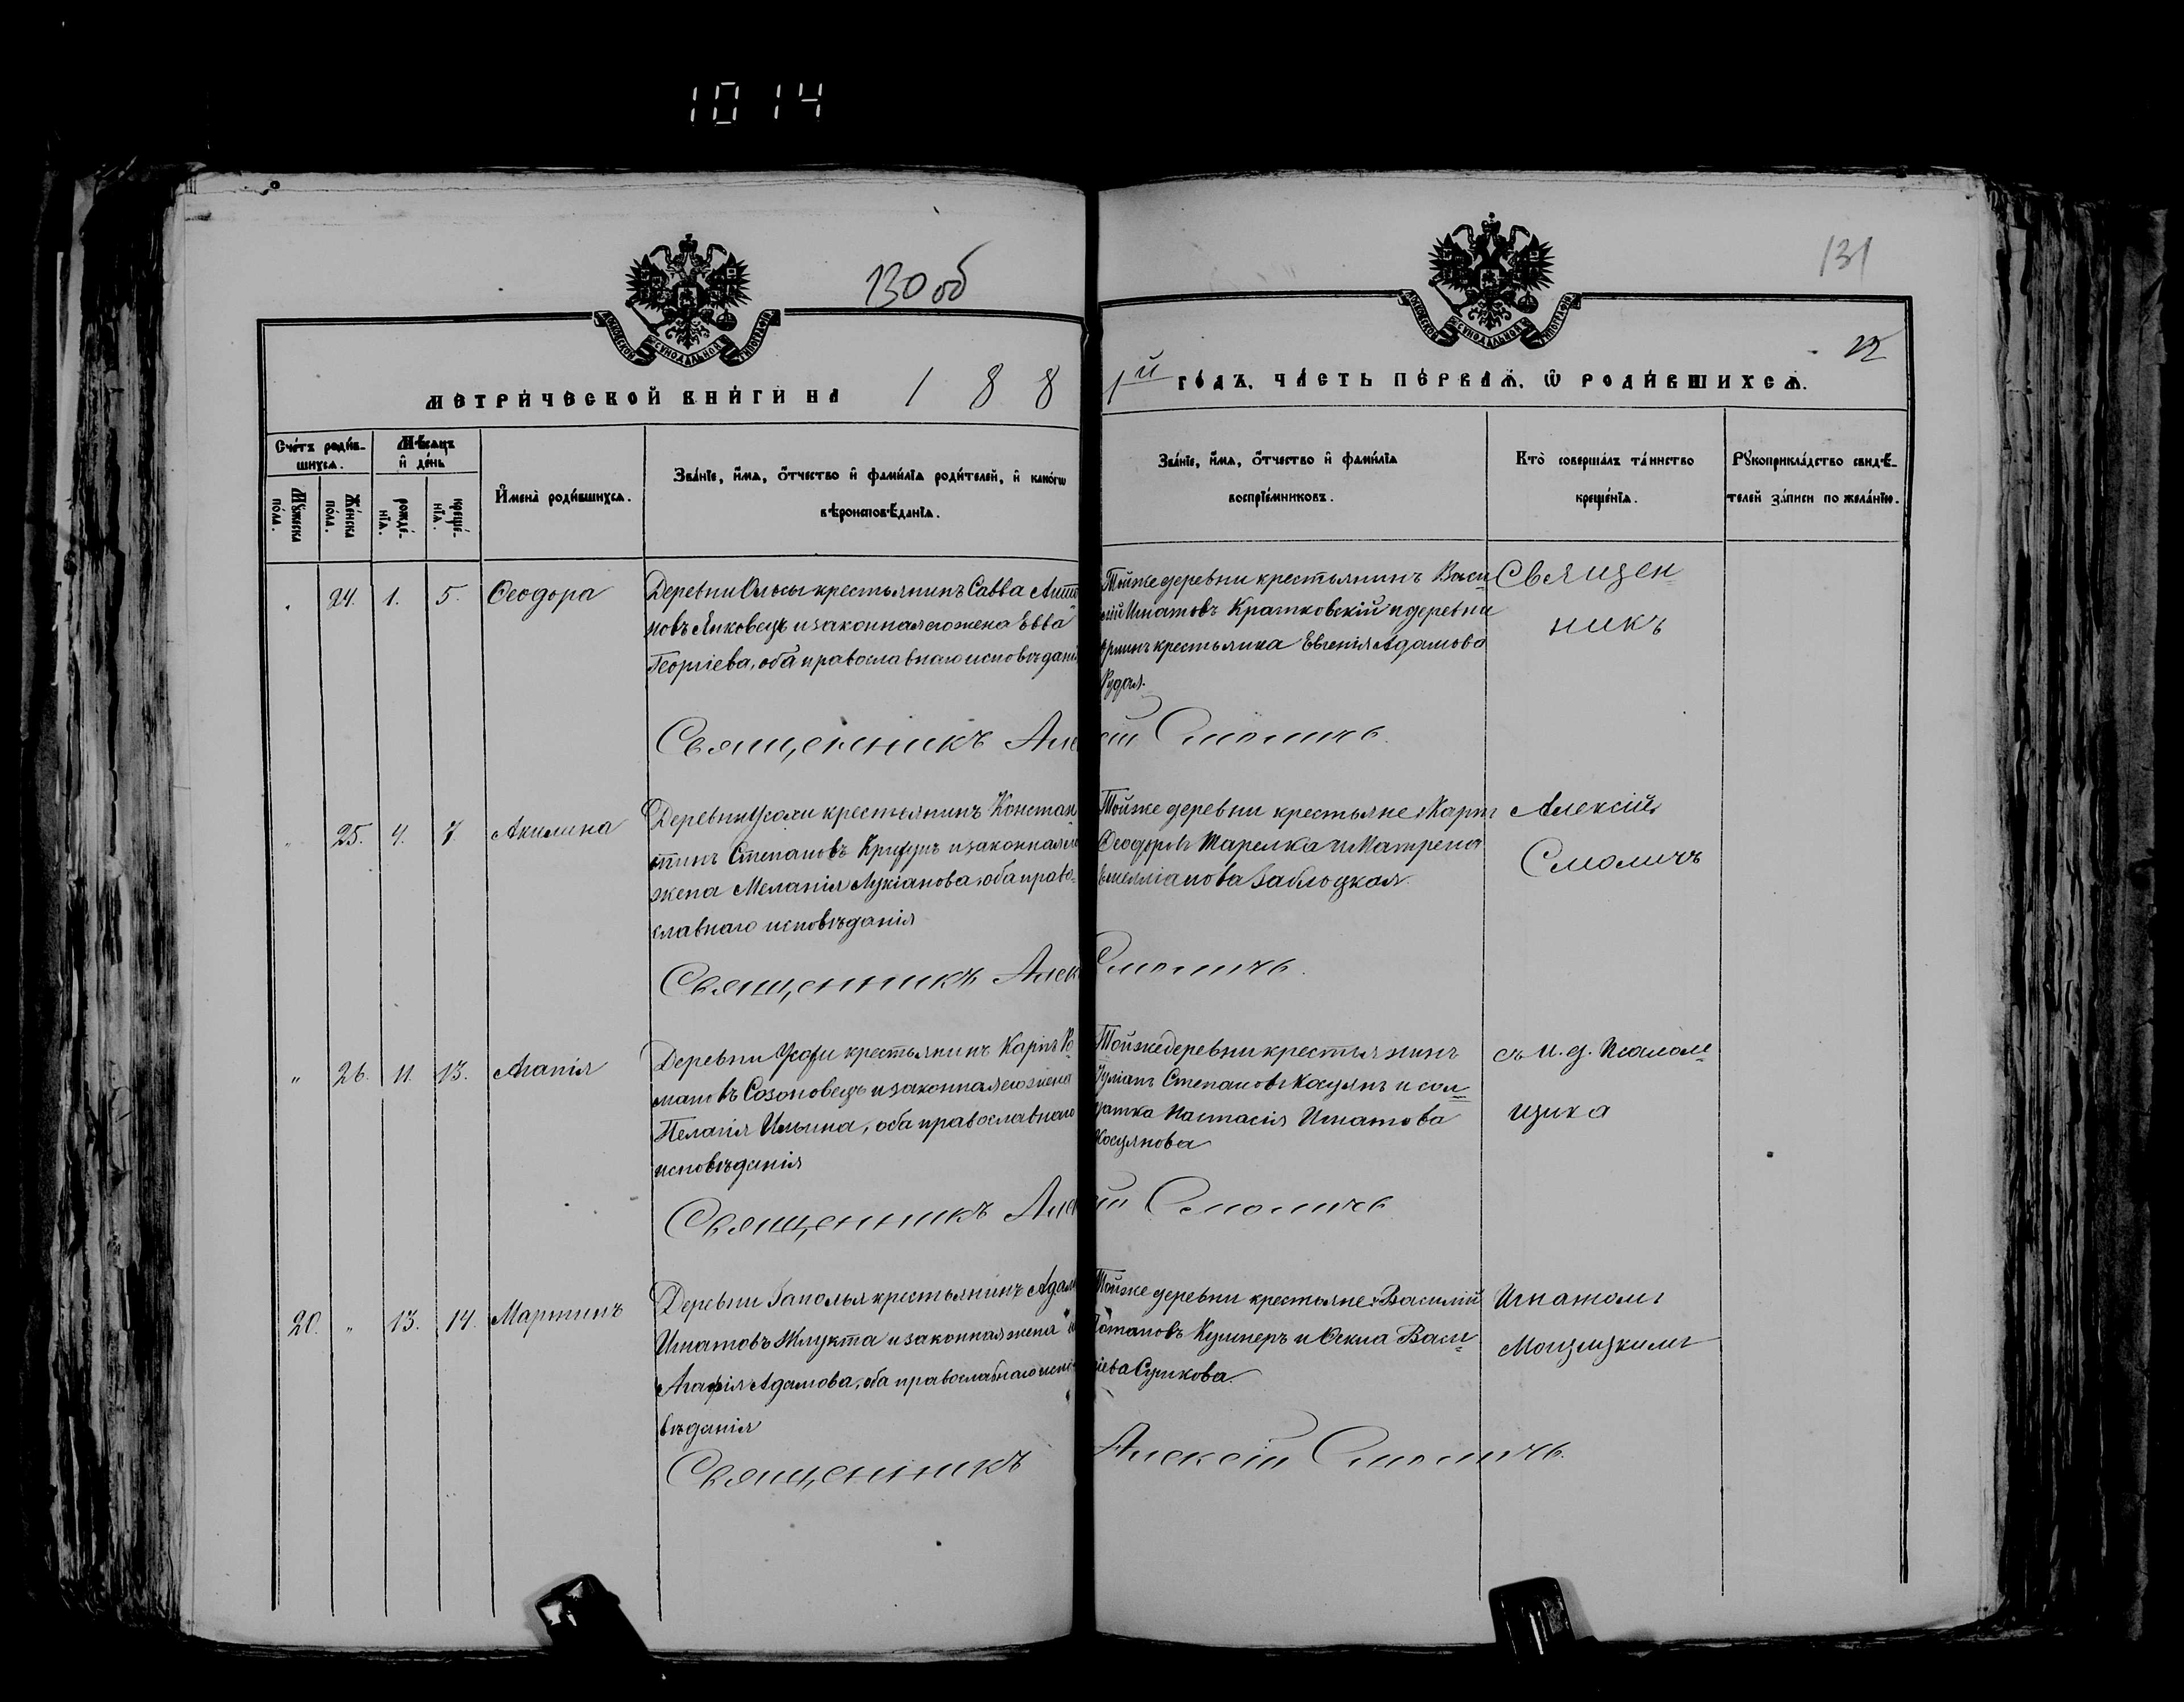 1014
130 об
131
22
МОСКОВСКОЙ СѴНОДАЛЬНОЙ ТИПОГРАФІИ
МОСКОВСКОЙ СѴНОДАЛЬНОЙ ТИПОГРАФІИ
МЕТРИ́ЧЕСКОЙ КНИ́ГИ НА 188
1й ГО́ДЪ, ЧА́СТЬ ПЕ́РВАѦ, Ѡ РОДИ́ВШИХСѦ.
Сче́тъ роди́в-
шихсѧ.
Мѣ́сѧцъ
и҆ де́нь
Мꙋ́жеска
по́ла.
Же́нска
по́ла.
рожде́-
нїѧ.
креще́-
нїѧ.
И҆мена̀ роди́вшихсѧ.
Зва́нїе, и҆́мѧ, ѻ҆́тчество и҆ фами́лїѧ роди́телей, и҆ како́гѡ
вѣроисповѣ́данїѧ.
Зва́нїе, и҆́мѧ, ѻ҆́тчество и҆ фами́лїѧ
воспрїе́мниковъ.
Кто̀ соверша́лъ та́инство
креще́нїѧ.
Рꙋкоприкла́дство свидѣ́-
телей за́писи по жела́нїю.
24. 1. 5. Ѳеодора
Деревни крестьянинъ Савва
новъ Янковецъ и законная его жена Евва
Георгіева, оба православнаго исповѣданія
Тойже деревни крестьянинъ Васи-
лій Игнатовъ Кратковскій и деревни
крестьянка Евгенія Адамова
Рудая.
Священ-
никъ
Священникъ Алексій Смоличъ.
25. 4. 7. Акилина
Деревни Усохи крестьянинъ Констан-
тинъ Степановъ и законная его
жена Меланія Лукіанова, оба право-
славнаго исповѣданія
Тойже деревни крестьяне: Карпъ
Ѳеодоровъ Тарелка и Матрена
Емеліанова Заблоцкая.
Алексій
Смоличъ
Священникъ Алек Смоличъ.
" 26. 11. 13. Агапія
Деревни Усохи крестьянинъ Карпъ Ро-
мановъ Созоновецъ и законная его жена
Пелагія Ильина, оба православнаго
исповѣданія
Тойже деревни крестьянинъ
Іуліанъ Степановъ Касуянъ и сол-
датка Настасія Игнатова
Касуянова
съ и. д. Псалом-
щика
Священникъ Алексій Смоличъ
20. " 13. 14. Мартинъ
Деревни Заполья крестьянинъ Адамъ
Игнатовъ Жлукта и законная жена его
Агафія Адамова, оба православнаго испо-
вѣданія
Тойже деревни крестьяне: Василій
Потаповъ Кушнеръ и Ѳекла Васи-
ліева Сушкова.
Игнатомъ
Священникъ Алексій Смоличъ.